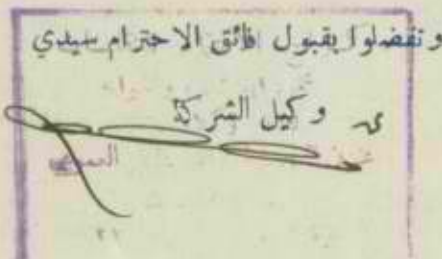 وتفضلوا بقبول فائق الاحترام سيدي
وكيل الشركة